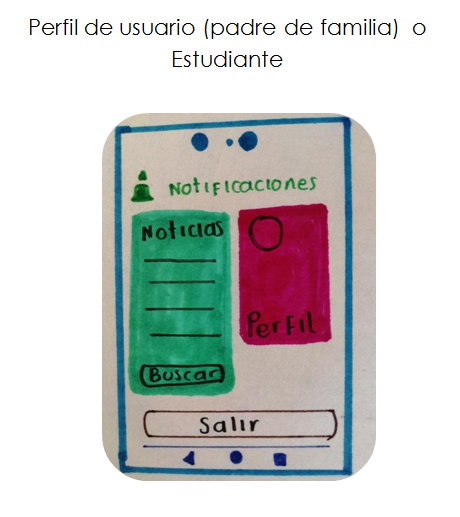 Perfil de usuario (padre de familia) o
Estudiante
Notificaciones
Noticias
Perfil
Buscar
Salir